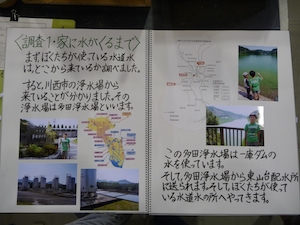 〈調査1・家に水がくるまで〉
まずぼくたちが使っている水道水
は、どこから来ているか調べました。
すると、川西市の浄水場から
来ていることが分かりました。その
浄水場は多田浄水場といいます。
この多田浄水場は一庫ダムの
水を使っています。
そして、多田浄水場から東山台配水所
に送られます。そして、ぼくたちが使って
いる水道水の所へやってきます。